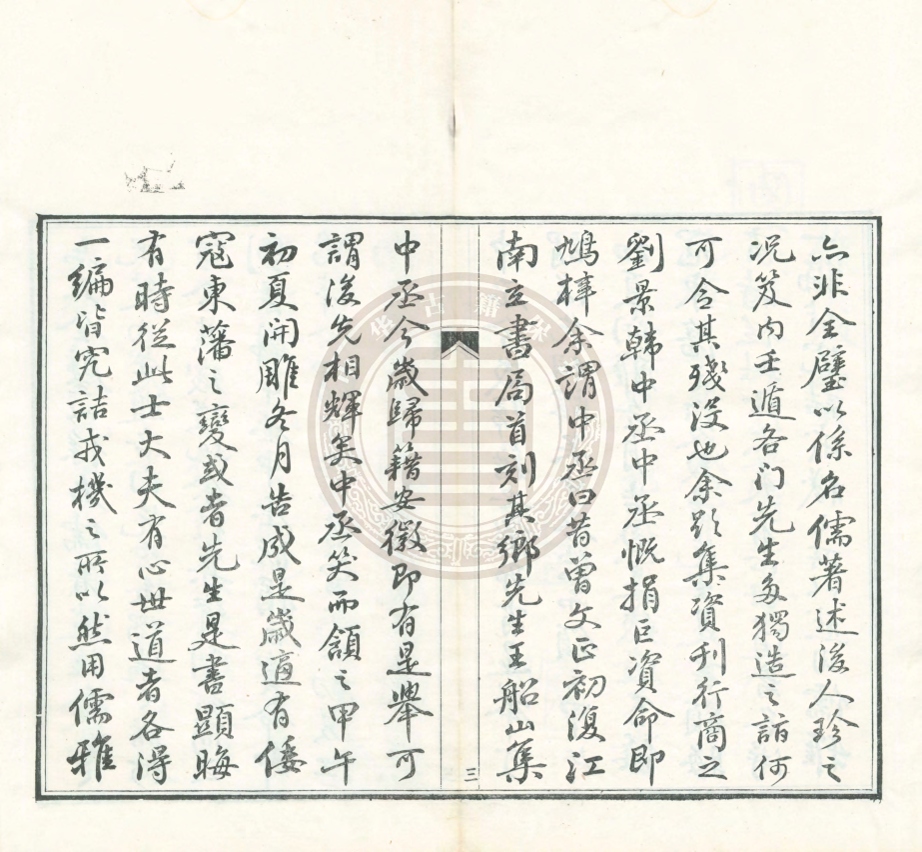 亦非全璧以係名儒著述後人珍之
况笈内壬遁各门先生多獨造之詣何
可令其殘没也余欲集資刊行商之
劉景韓中丞中丞慨捐巨資命即
鳩梓余謂中丞曰昔曾文正初復江
南立書局首刻其鄉先生王船山集
三
中丞今歲歸籍安徽即有是舉可
謂後先相輝矣中丞笑而頷之甲午
初夏開雕冬月告成是歲適有倭
寇東藩之變或者先生是書顯晦
有時從此士大夫有心世道者各得
一編皆究詰戎機之所以然用儒雅